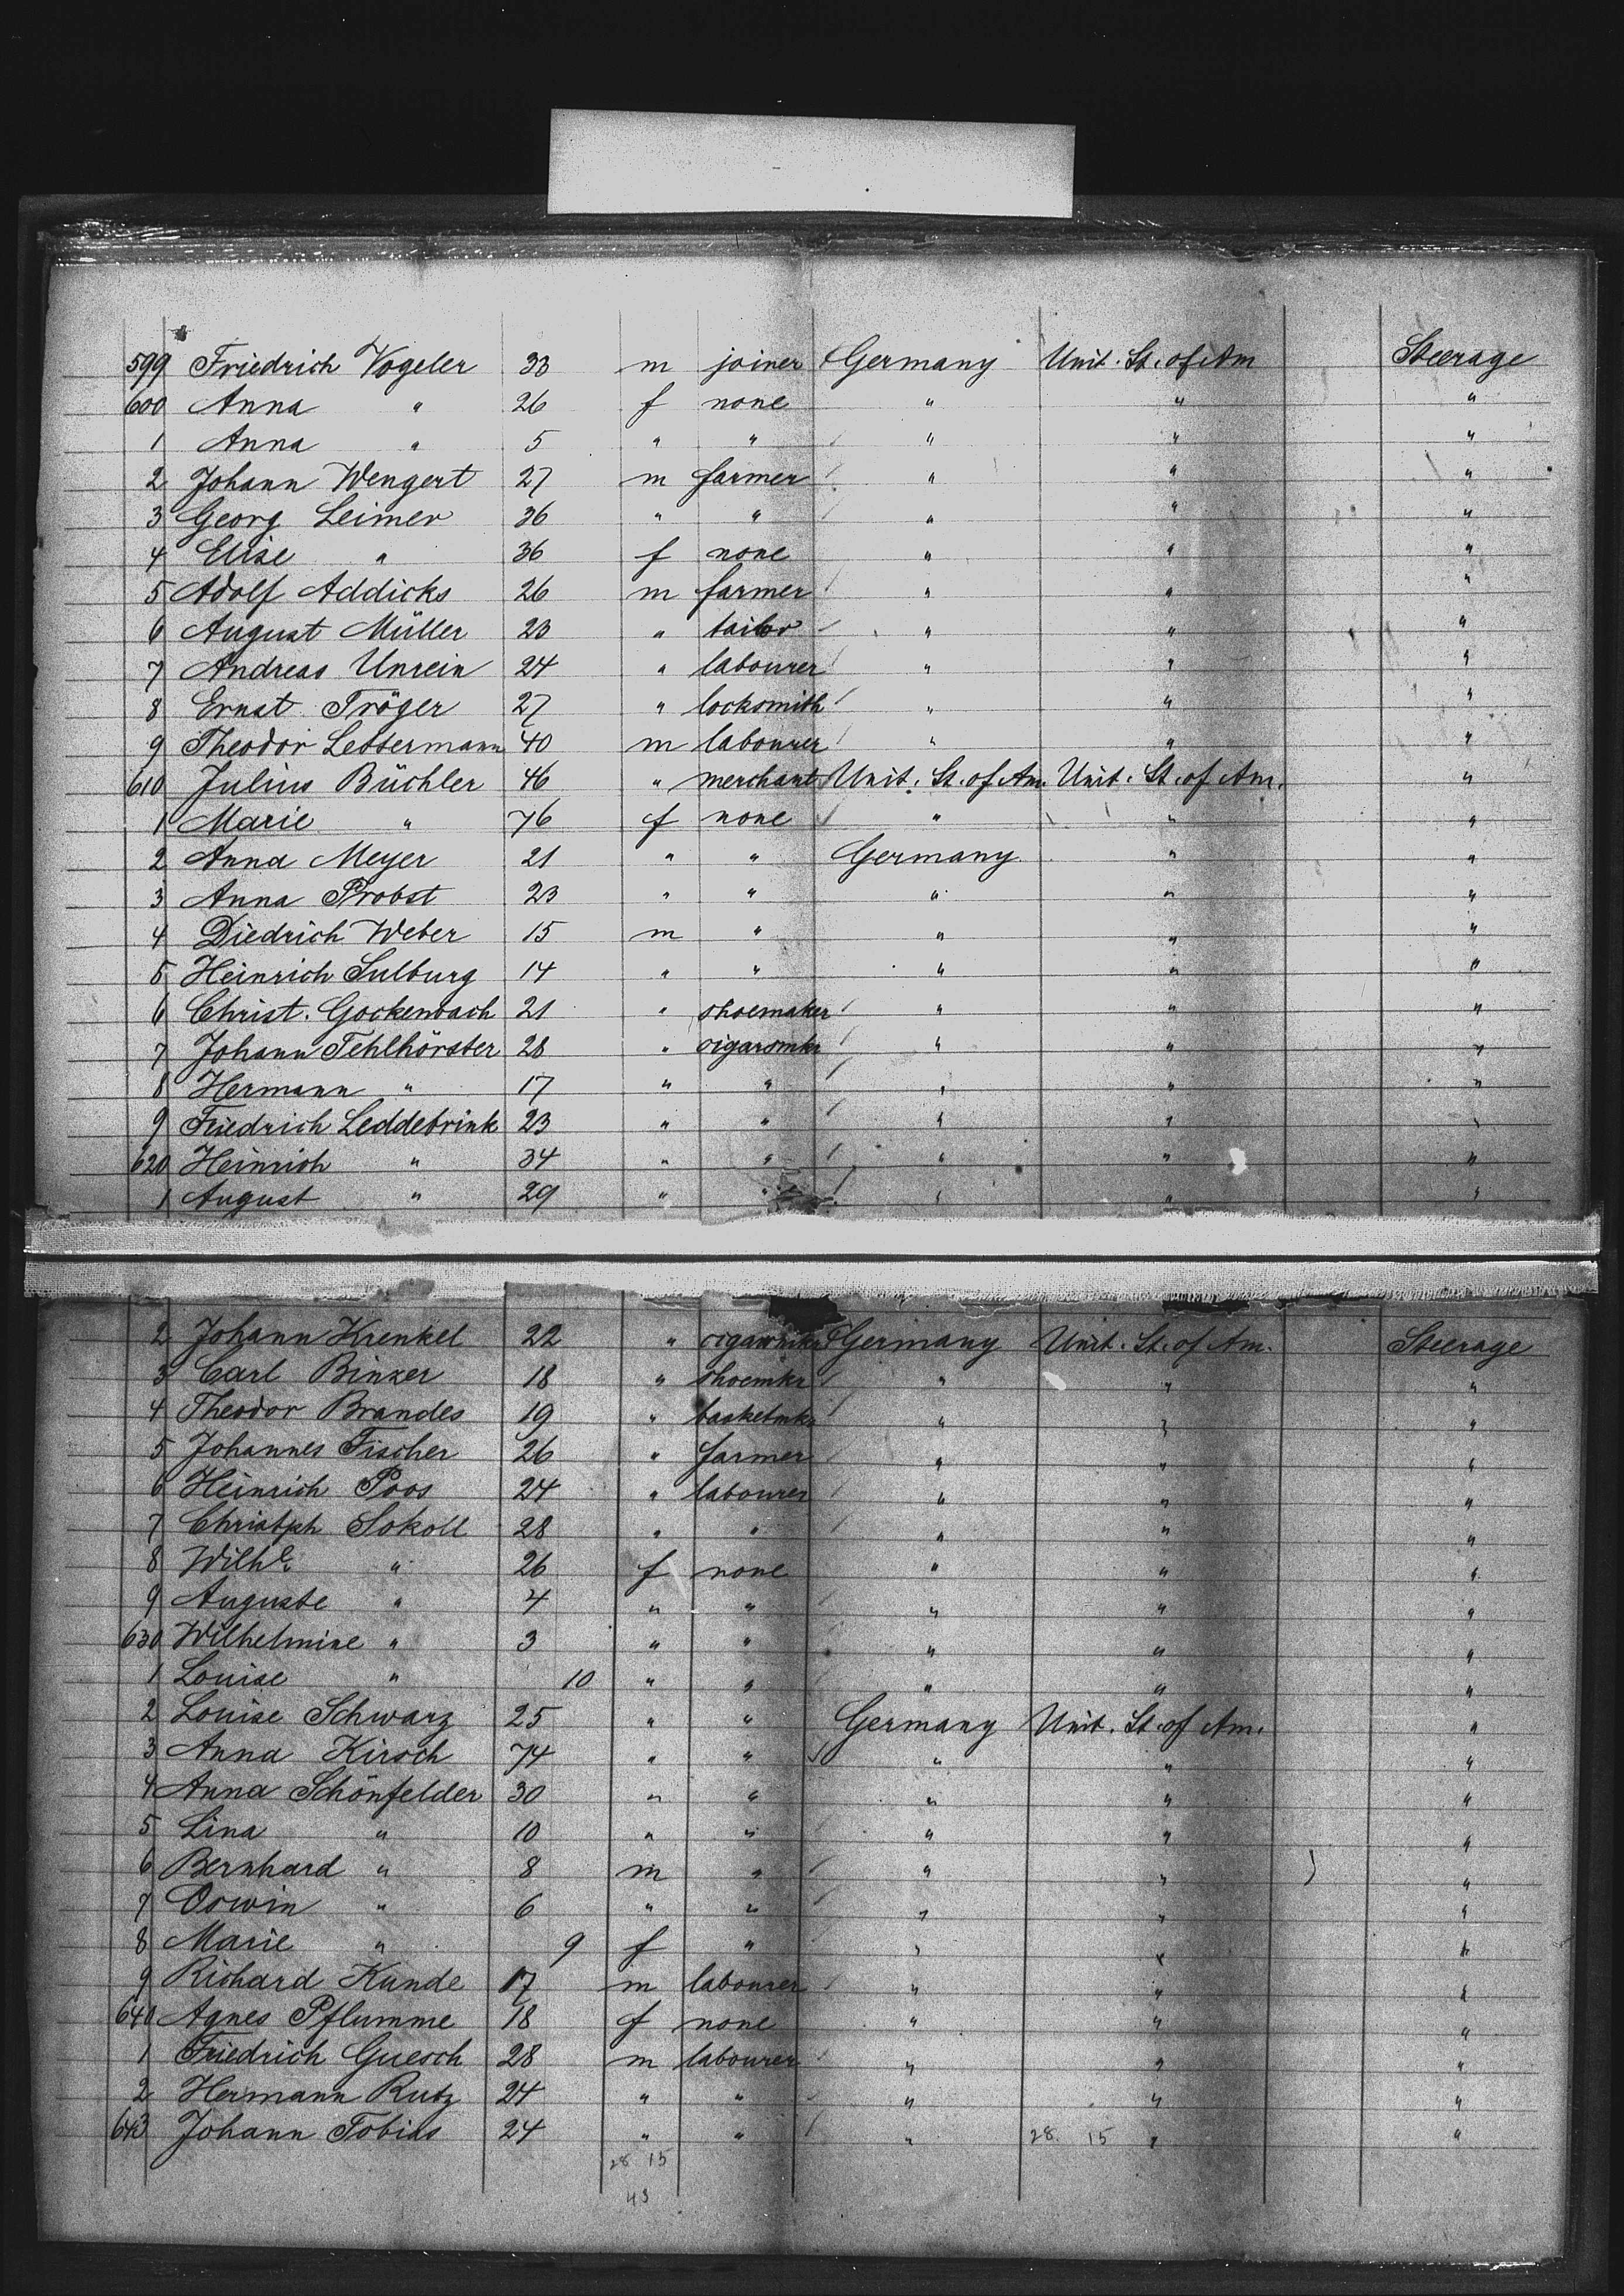 599 Friedrich Vogeler 33 m joiner Germany Unit. St. of Am Steerage
600 Anna " 26 f none " " "
1 Anna " 5 " " " " "
2 Johann Wengert 27 m farmer " " "
3 Georg Leimer 36 " " " " "
4 Elise " 36 f none " " "
5 Adolf Addicks 26 m farmer " " "
6 August Müller 23 " tailor " " "
7 Andreas Unrein 24 " labourer " " "
8 Ernst Tröger 27 " locksmith " " "
9 Theodor Lessermann 40 m labourer " " "
610 Julius Büchler 46 " merchant Unit. St. of Am. Unit. St. of Am. "
1 Marie " 76 f none " " "
2 Anna Meyer 21 " " Germany " "
3 Anna Probst 23 " " " " "
4 Diedrich Weber 15 m " " " "
5 Heinrich Sulburg 14 " " " " "
6 Christ. Gockenbach 21 " shoemaker " " "
7 Johann Fehlhörster 28 " cigarsmkr " " "
8 Hermann " 17 " " " " "
9 Friedrich Leddebrink 23 " " " " "
620 Heinrich " 34 " " " " "
1 August " 29 " " " " "
2 Johann Krenkel 22 " cigarsmkr Germany Unit. St. of Am. Steerage
3 Carl Binzer 18 " shoemkr " " "
4 Theodor Brandes 19 " basketmkr " " "
5 Johannes Fischer 26 " farmer " " "
6 Heinrich Poos 24 " labourer " " "
7 Christph Sokoll 28 " " " " "
8 Wilhe. " 26 f none " " "
9 Auguste " 4 " " " " "
630 Wilhelmine " 3 " " " " "
1 Louise " 10 " " " " "
2 Louise Schwarz 25 " " Germany Unit. St. of Am. "
3 Anna Kirsch 74 " " " " "
4 Anna Schönfelder 30 " " " " "
5 Lina " 10 " " " " "
6 Bernhard " 8 m " " " "
7 Oswin " 6 " " " " "
8 Marie " 9 f " " " "
9 Richard Kunde 17 m labourer " " "
640 Agnes Pflumme 18 f none " " "
1 Friedrich Guesch 28 m labourer " " "
2 Hermann Rutz 24 " " " " "
643 Johann Tobias 24 " " " 28. 15 " "
28 15
43